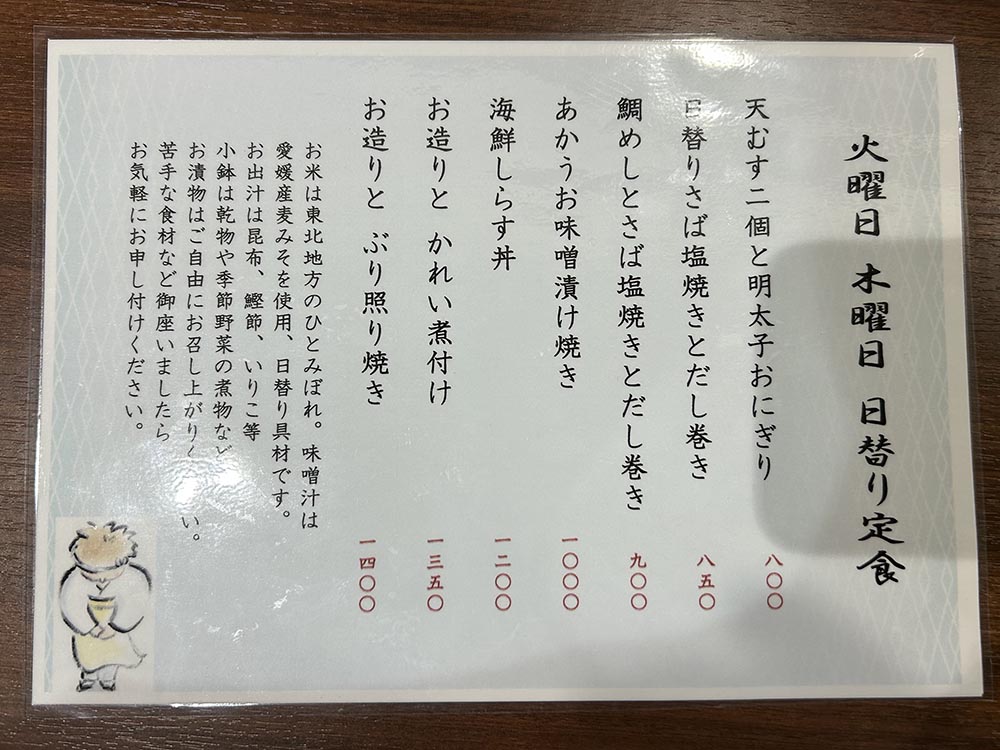 火曜日 木曜日 日替り定食
天むす二個と明太子おにぎり 八〇〇
日替りさば塩焼きとだし巻き 八五〇
鯛めしとさば塩焼きとだし巻き 九〇〇
あかうお味噌漬け焼き 一〇〇〇
海鮮しらす丼 一二〇〇
お造りと かれい煮付け 一三五〇
お造りと ぶり照り焼き 一四〇〇
お米は東北地方のひとみぼれ。味噌汁は
愛媛産麦みそを使用、日替り具材です。
お出汁は昆布、鰹節、いりこ等
小鉢は乾物や季節野菜の煮物など
お漬物はご自由にお召し上がりく い。
苦手な食材など御座いましたら
お気軽にお申し付けください。